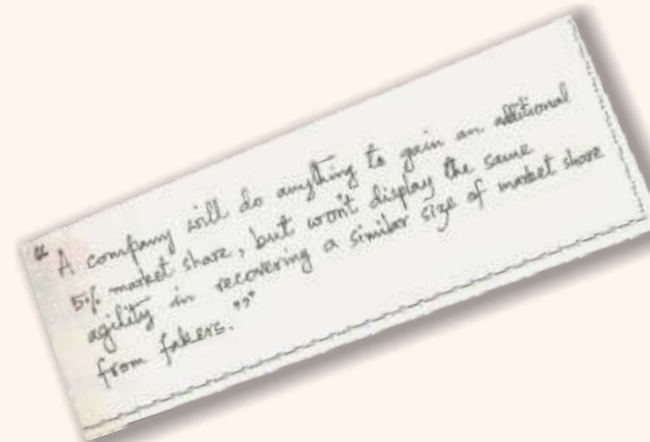 “A company will do anything to gain an additional
5% market share, but won't display the same
agility in recovering a similar size of market share
from fakers.”